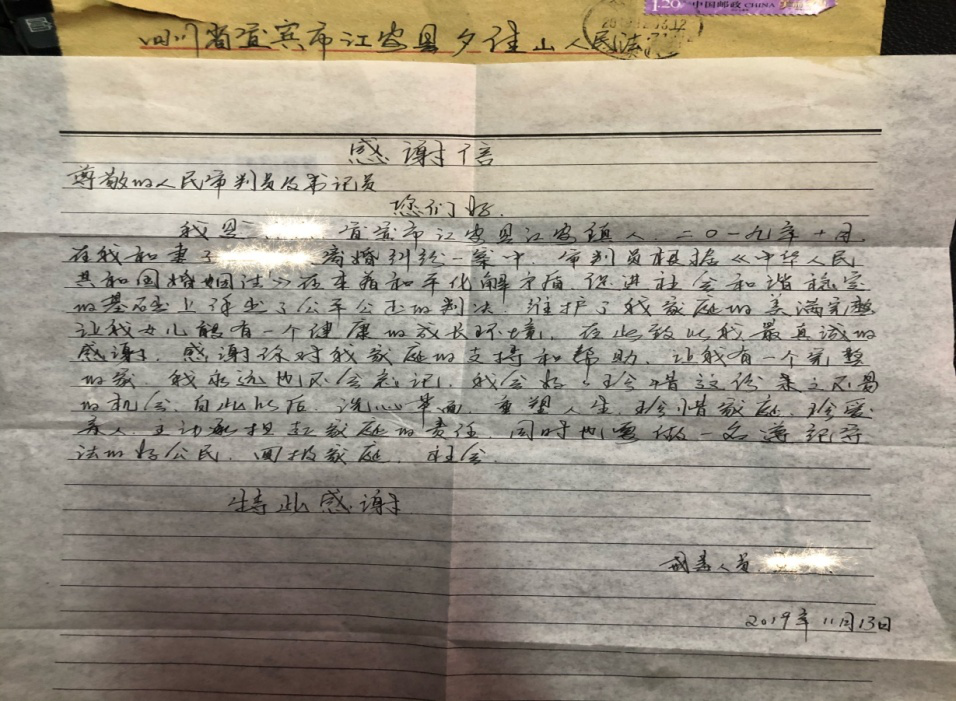 1.20 中国邮政 CHINA
四川省宜宾市江安县夕佳山人民法
感谢信
尊敬的人民审判员及书记员
您们好.
我是 宜宾市江安县江安镇人.二0一九年十月.
在我和妻子 离婚纠纷一案中,审判员根据《中华人民
共和国婚姻法》在本着和平化解矛盾,促进社会和谐稳定
的基础上译出了公平公正的判决.维护了我家庭的美满完整
让我女儿能有一个健康的成长环境.在此致此我最真诚的
感谢.感谢你对我家庭的支持和帮助.让我有一个完整
的家.我永远也不会忘记.我会好.珍惜这份来之不易
的机会.自此以后.洗心革面.重塑人生.珍惜家庭.珍爱
亲人.主动承担起家庭的责任.同时也要做一名遵纪守
法的好公民.回报家庭.社会.
特此感谢
人员
2019年11月13日